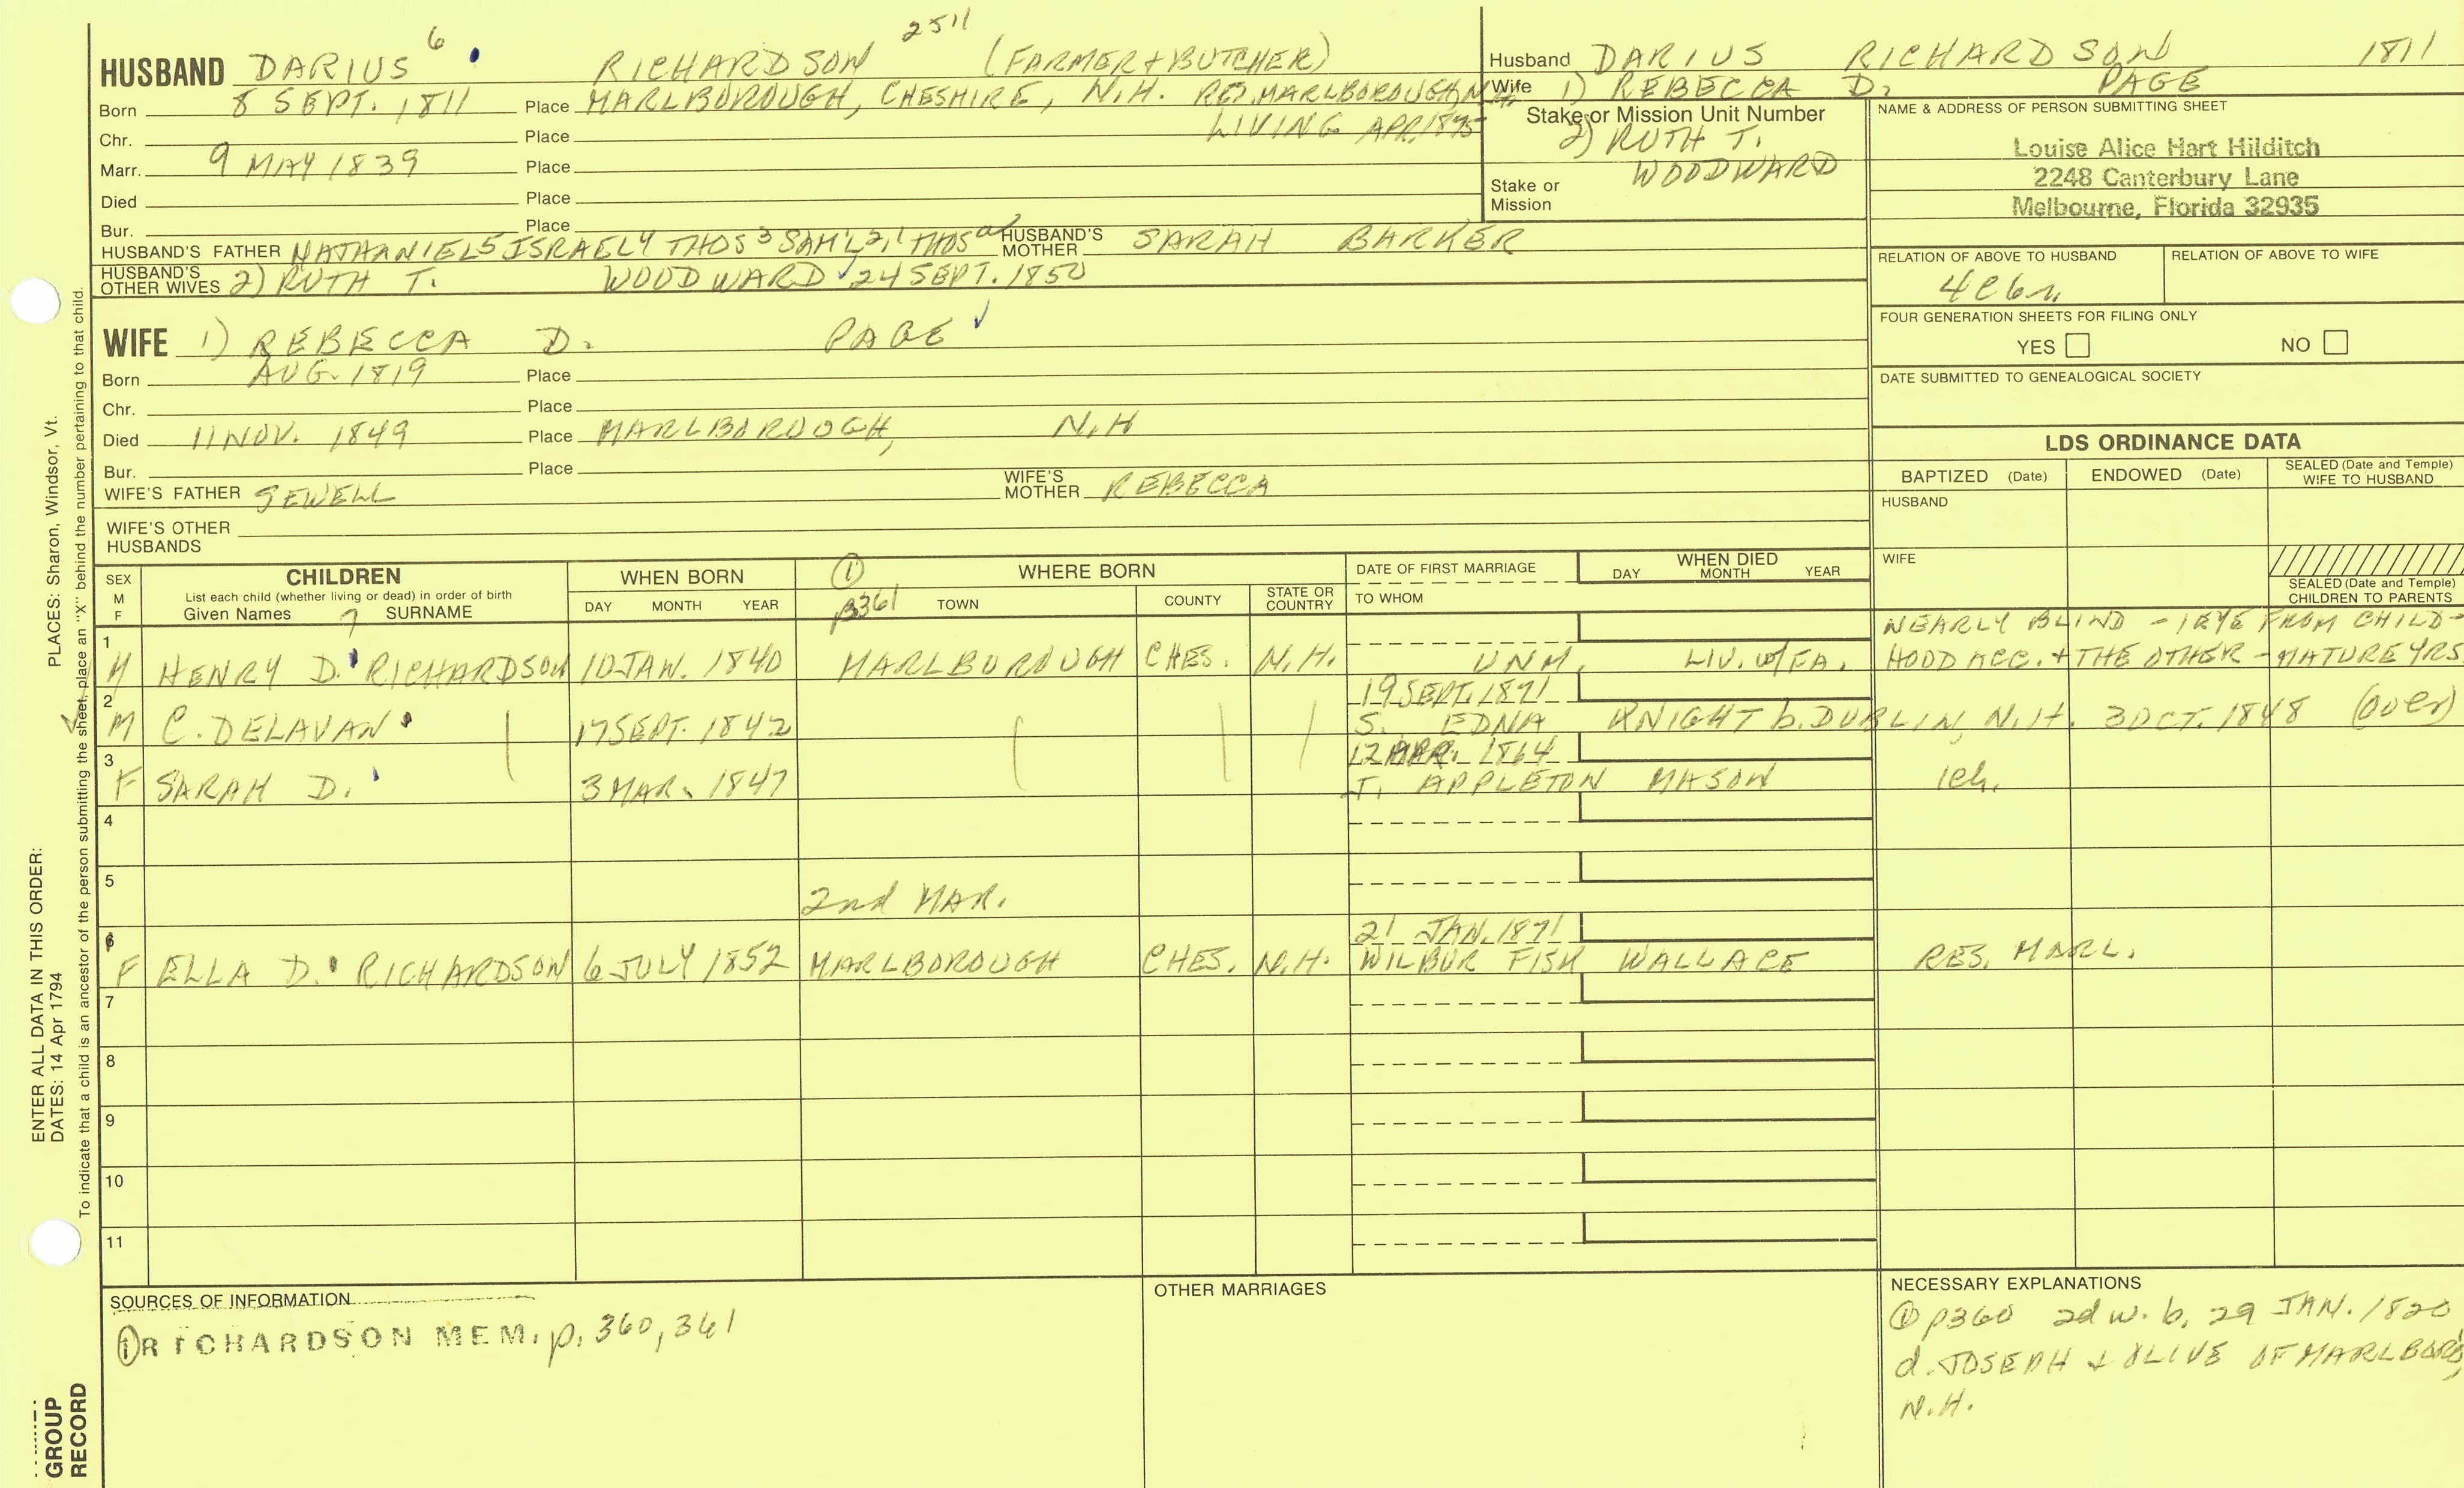 2511
HUSBAND DARIUS 6 RICHARDSON (FARMER & BUTCHER)
Born 8 SEPT. 1811 Place MARLBOROUGH, CHESHIRE, N.H. RES. MARLBOROUGH, N.H.
LIVING APR. 1875
Chr. Place
Marr. 9 MAY 1839 Place
Died Place
Bur. Place
HUSBAND'S FATHER NATHANIEL 5 ISRAEL 4 THOS 3 SAM'L 2, 1 THOS HUSBAND'S MOTHER SARAH BARKER
HUSBAND'S OTHER WIVES 2) RUTH T. WOODWARD 24 SEPT. 1850
Husband DARIUS RICHARDSON 1811
Wife 1) REBECCA D. PAGE
Stake or Mission Unit Number
2) RUTH T.
WOODWARD
Stake or Mission
NAME & ADDRESS OF PERSON SUBMITTING SHEET
Louise Alice Hart Hilditch
2248 Canterbury Lane
Melbourne, Florida 32935
RELATION OF ABOVE TO HUSBAND RELATION OF ABOVE TO WIFE
4c6r
FOUR GENERATION SHEETS FOR FILING ONLY
YES NO
DATE SUBMITTED TO GENEALOGICAL SOCIETY
WIFE 1) REBECCA D. PAGE
Born AUG. 1819 Place
Chr. Place
Died 11 NOV. 1849 Place MARLBOROUGH, N.H
Bur. Place
WIFE'S FATHER SEWELL WIFE'S MOTHER REBECCA
WIFE'S OTHER HUSBANDS
LDS ORDINANCE DATA
BAPTIZED (Date) ENDOWED (Date) SEALED (Date and Temple) WIFE TO HUSBAND
HUSBAND
WIFE
SEALED (Date and Temple) CHILDREN TO PARENTS
SEX M F CHILDREN List each child (whether living or dead) in order of birth Given Names 7 SURNAME
WHEN BORN DAY MONTH YEAR
① P361 WHERE BORN TOWN COUNTY STATE OR COUNTRY
DATE OF FIRST MARRIAGE TO WHOM
WHEN DIED DAY MONTH YEAR
1 M HENRY D. RICHARDSON 10 JAN. 1840 MARLBOROUGH CHES. N.H. UNM. LIV. w/FA. NEARLY BLIND - 1 EYE FROM CHILD-
HOOD ACC. & THE OTHER - MATURE YRS
2 M C. DELAVAN 17 SEPT. 1842 19 SEPT. 1871
S. EDNA KNIGHT b. DUBLIN, N.H. 3 OCT. 1848 (over)
3 F SARAH D. 3 MAR. 1847 12 MAR. 1864
T. APPLETON MASON 1ch.
4
5 2nd MAR.
6 F ELLA D. RICHARDSON 6 JULY 1852 MARLBOROUGH CHES. N.H. 21 JAN. 1871
WILBUR FISK WALLACE RES. MARL.
7
8
9
10
11
SOURCES OF INFORMATION
① RICHARDSON MEM. p. 360, 361
OTHER MARRIAGES
NECESSARY EXPLANATIONS
① p360 2d w. b. 29 JAN. 1820
d. JOSEPH & OLIVE OF MARLBORO,
N.H.
PLACES: Sharon, Windsor, Vt.
ENTER ALL DATA IN THIS ORDER:
DATES: 14 Apr 1794
To indicate that a child is an ancestor of the person submitting the sheet, place an "X" behind the number pertaining to that child.
GROUP
RECORD